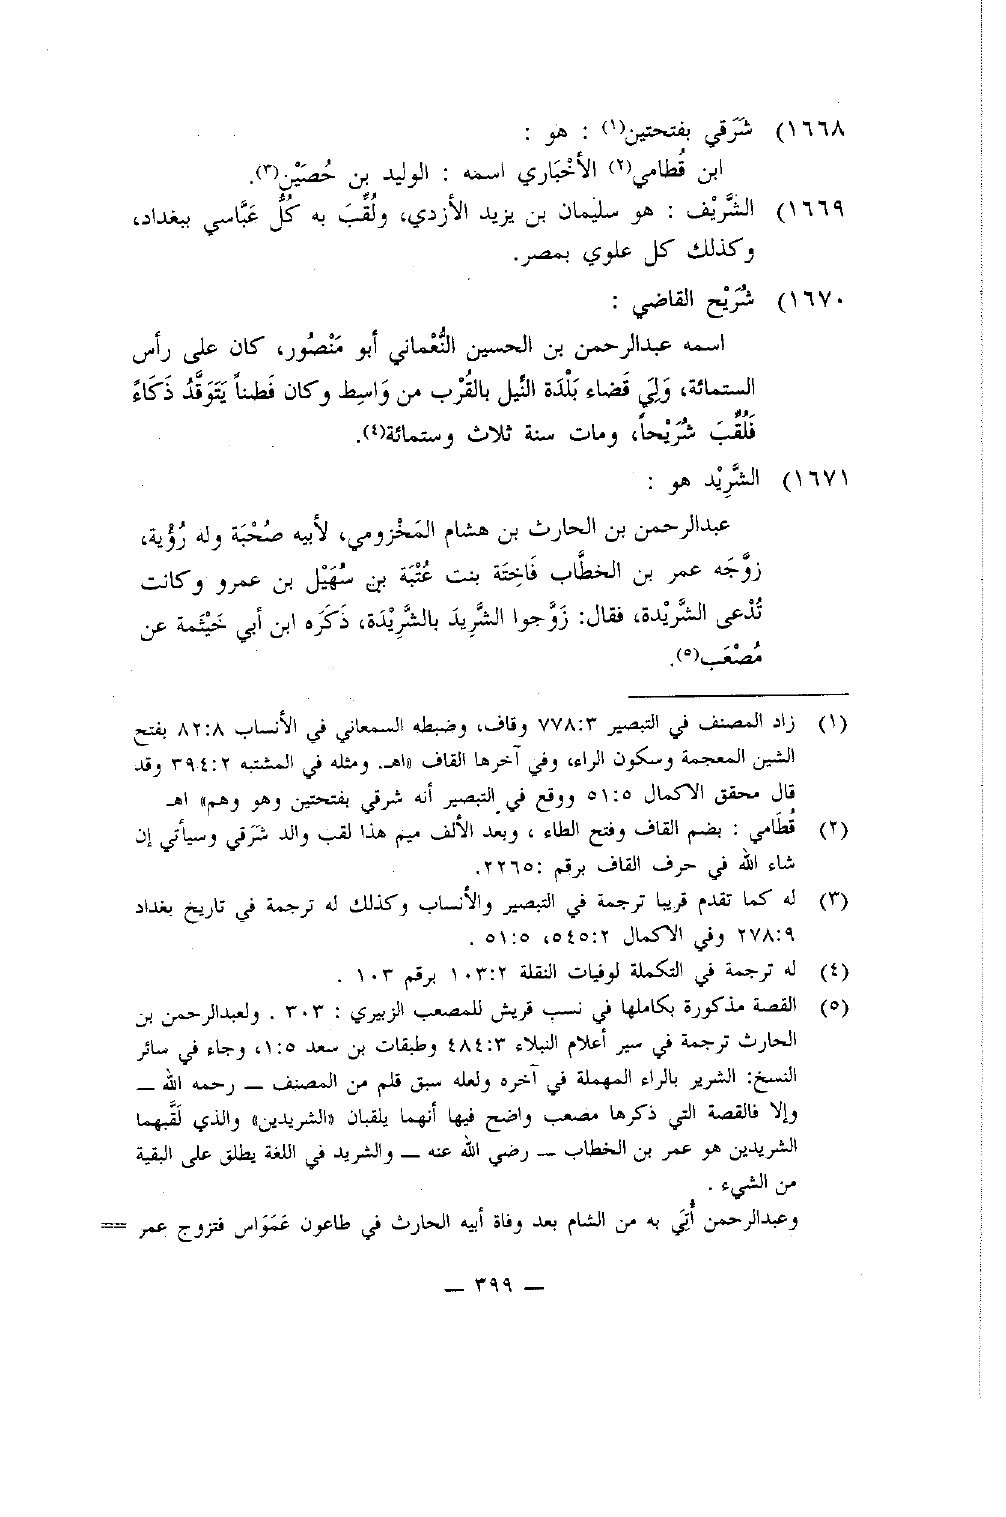 ١٦٦٨) شَرَقي بفتحتين(١) : هو :
ابن قُطامي(٢) الأخْبَاري اسمه : الوليد بن حُصَيْن(٣).
١٦٦٩) الشَّرِيْف : هو سليمان بن يزيد الأزدي، ولُقِّبَ به كُلُّ عَبَّاسي ببغداد،
وكذلك كل علوي بمصر.
١٦٧٠) شُرَيْح القاضي :
اسمه عبدالرحمن بن الحسين النُّعْماني أبو مَنْصُور، كان على رأس
الستمائة، وَلِيَ قَضاء بَلْدَة النِّيل بالقُرْب من وَاسِط وكان فَطناً يَتَوَقَّدُ ذَكَاءً
فَلُقِّبَ شُرَيْحاً، ومات سنة ثلاث وستمائة(٤).
١٦٧١) الشَّرِيْد هو :
عبدالرحمن بن الحارث بن هشام المَخْزومي، لأبيه صُحْبَة وله رُؤْية،
زوَّجَه عمر بن الخطَّاب فَاخِتَة بنت عُتْبَة بن سُهَيْل بن عمرو وكانت
تُدْعى الشَّرِيْدة، فقال: زَوَّجوا الشَّرِيدَ بالشَّرِيْدَة، ذَكَرَه ابن أبي خَيْثَمة عن
مُصْعَب(٥).
(١) زاد المصنف في التبصير ٧٧٨:٣ وقاف، وضبطه السمعاني في الأنساب ٨٢:٨ بفتح
الشين المعجمة وسكون الراء، وفي آخرها القاف «اهـ. ومثله في المشتبه ٣٩٤:٢ وقد
قال محقق الاكمال ٥١:٥ ووقع في التبصير أنه شرقي بفتحتين وهو وهم» اهـ
(٢) قُطَامي : بضم القاف وفتح الطاء ، وبعد الألف ميم هذا لقب والد شَرَقي وسيأتي إن
شاء الله في حرف القاف برقم :٢٢٦٥.
(٣) له كما تقدم قريبا ترجمة في التبصير والأنساب وكذلك له ترجمة في تاريخ بغداد
٢٧٨:٩ وفي الاكمال ٥٤٥:٢، ٥١:٥ .
(٤) له ترجمة في التكملة لوفيات النقلة ١٠٣:٢ برقم ١٠٣ .
(٥) القصة مذكورة بكاملها في نسب قريش للمصعب الزبيري : ٣٠٣ . ولعبدالرحمن بن
الحارث ترجمة في سير أعلام النبلاء ٤٨٤:٣ وطبقات بن سعد ١:٥، وجاء في سائر
النسخ: الشرير بالراء المهملة في آخره ولعله سبق قلم من المصنف — رحمه الله —
وإلا فالقصة التي ذكرها مصعب واضح فيها أنهما يلقبان «الشريدين» والذي لَقَّبهما
الشريدين هو عمر بن الخطاب — رضي الله عنه — والشريد في اللغة يطلق على البقية
من الشيء .
وعبدالرحمن أُتِيَ به من الشام بعد وفاة أبيه الحارث في طاعون عَمَوَاس فتزوج عمر ==
— ٣٩٩ —